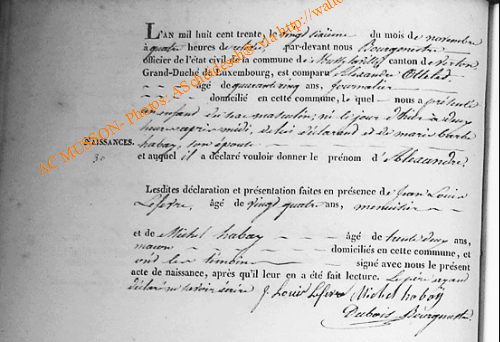 L'AN mil huit cent trente, le vingt sixième du mois de novembre
à quatre heures de relevée, par-devant nous Bourgmestre
officier de l'état civil de la commune de canton de Virton
Grand-Duché de Luxembourg, est comparu Alexandre
âgé de quarante cinq ans, journalier
domicilié en cette commune, le quel nous a présenté
un enfant du sexe masculin, né le jour d'hier à deux
heures après midi, de lui déclarant et de marie barbe
NAISSANCES. habay, son épouse
30 et auquel il a déclaré vouloir donner le prénom d'Alexandre.
Lesdites déclaration et présentation faites en présence de Jean Louis
Lefevre, âgé de vingt quatre ans, menuisier
et de Michel habay âgé de trente deux ans,
maçon domiciliés en cette commune, et
ont les témoins signé avec nous le présent
acte de naissance, après qu'il leur en a été fait lecture. Le père ayant
déclaré ne savoir écrire J. Louis Lefevre Michel habay
Dubois Bourgmestre
AC MUSSON- Photos: via http://